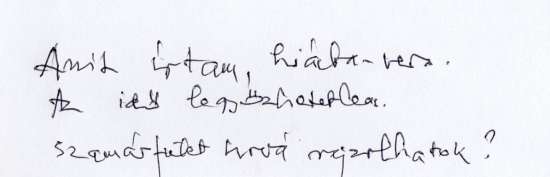 Amit írtam, hiába-vers.
Az idő legyőzhetetlen.
Szamárfület hová rajzolhatok?